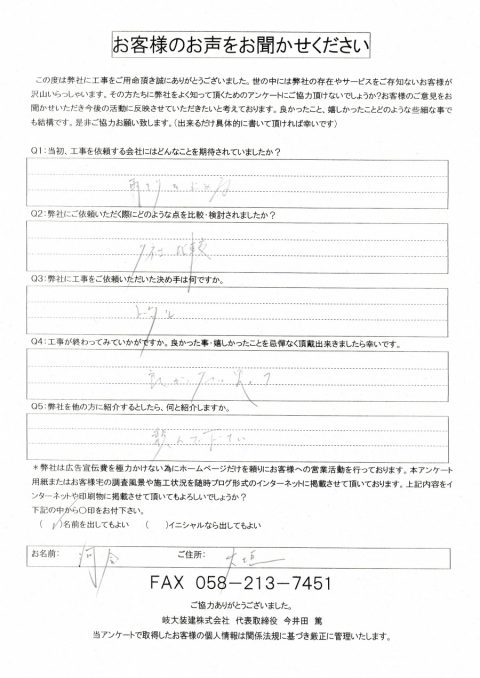 お客様のお声をお聞かせください
この度は弊社に工事をご用命頂き誠にありがとうございました。世の中には弊社の存在やサービスをご存知ないお客様が
沢山いらっしゃいます。その方たちに弊社をよく知って頂くためのアンケートにご協力頂けないでしょうか?お客様のご意見をお
聞かせいただき今後の活動に反映させていただきたいと考えております。良かったこと、嬉しかったことどのような些細な事で
も結構です。是非ご協力お願い致します。(出来るだけ具体的に書いて頂ければ幸いです)
Q1:当初、工事を依頼する会社にはどんなことを期待されていましたか?
Q2:弊社にご依頼いただく際にどのような点を比較・検討されましたか?
他社比較
Q3:弊社に工事をご依頼いただいた決め手は何ですか。
トータル
Q4:工事が終わってみていかがですか。良かった事・嬉しかったことを忌憚なく頂戴出来きましたら幸いです。
Q5:弊社を他の方に紹介するとしたら、何と紹介しますか。
頼んで下さい
*弊社は広告宣伝費を極力かけない為にホームページだけを頼りにお客様への営業活動を行っております。本アンケート
用紙またはお客様宅の調査風景や施工状況を随時ブログ形式のインターネットに掲載させて頂いております。上記内容をイ
ンターネットや印刷物に掲載させて頂いてもよろしいでしょうか?
下記の中から○印をお付下さい。
( )名前を出してもよい ( )イニシャルなら出してもよい
お名前: 河合 ご住所: 大垣
FAX 058-213-7451
ご協力ありがとうございました。
岐大装建株式会社 代表取締役 今井田 篤
当アンケートで取得したお客様の個人情報は関係法規に基づき厳正に管理いたします。